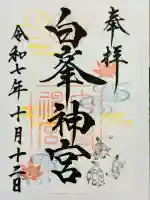 奉拝
白峯神宮
令和七年十月十二日